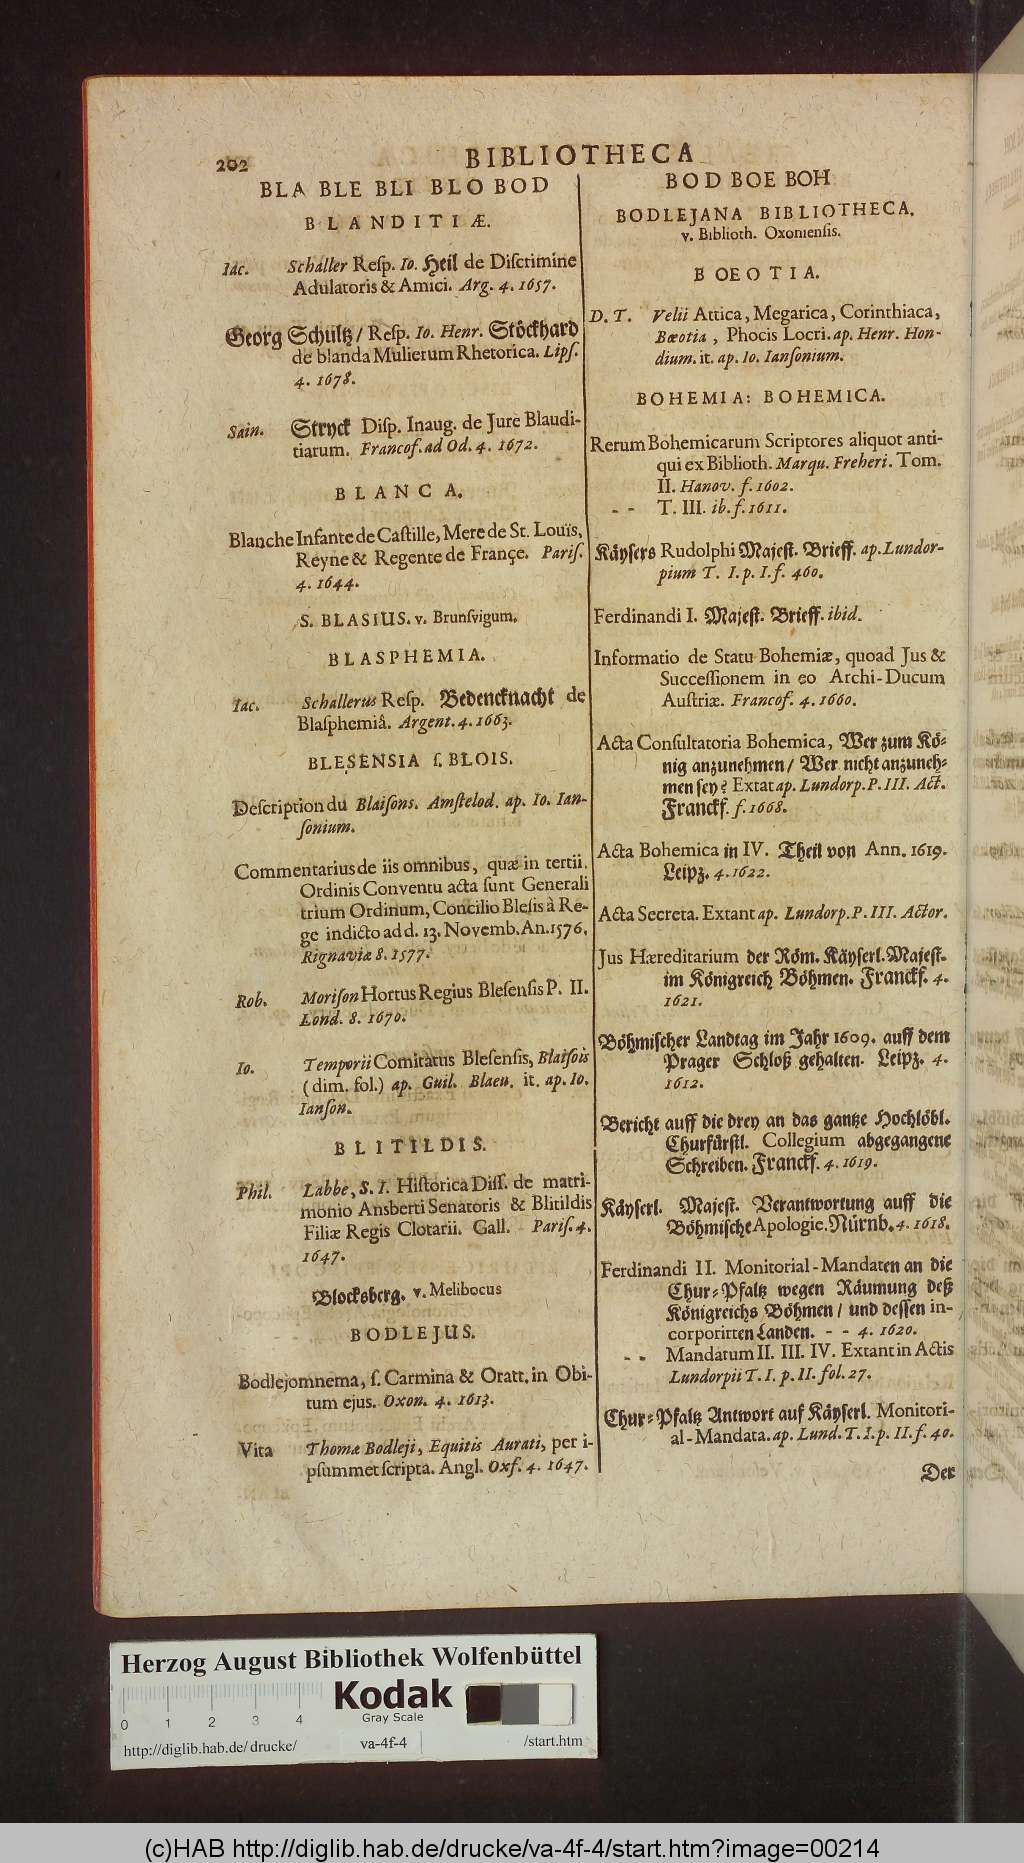 202
BIBLIOTHECA
BLA BLE BLI BLO BOD
BLANDITIÆ.
Iac. Schaller Resp. Io. Heil de Discrimine
Adulatoris & Amici. Arg. 4. 1657.
Georg Schultz / Resp. Io. Henr. Stöckhard
de blanda Mulierum Rhetorica. Lips.
4. 1678.
Sam. Stryck Disp. Inaug. de Jure Blaudi-
tiarum. Francof. ad Od. 4. 1672.
BLANCA.
Blanche Infante de Castille, Mere de St. Louïs,
Reyne & Regente de Françe. Paris.
4. 1644.
S. BLASIUS. v. Brunsvigum.
BLASPHEMIA.
Iac. Schallerus Resp. Bedencknacht de
Blasphemiâ. Argent. 4. 1663.
BLESENSIA s. BLOIS.
Description du Blaisons. Amstelod. ap. Io. Ian-
sonium.
Commentarius de iis omnibus, quæ in tertii.
Ordinis Conventu acta sunt Generali
trium Ordinum, Concilio Blesis à Re-
ge indicto ad d. 13. Novemb. An. 1576.
Rignaviæ 8. 1577.
Rob. Morison Hortus Regius Blesensis P. II.
Lond. 8. 1670.
Io. Temporii Comitatus Blesensis, Blaisois
(dim. fol.) ap. Guil. Blaeu. it. ap. Io.
Ianson.
BLITILDIS.
Phil. Labbe, S. I. Historica Diss. de matri-
monio Ansberti Senatoris & Blitildis
Filiæ Regis Clotarii. Gall. Paris. 4.
1647.
Blocksberg. v. Melibocus
BODLEJUS.
Bodlejomnema, s. Carmina & Oratt. in Obi-
tum ejus. Oxon. 4. 1613.
Vita Thomæ Bodleji, Equitis Aurati, per i-
psummet scripta. Angl. Oxf. 4. 1647.
BOD BOE BOH
BODLEJANA BIBLIOTHECA.
v. Biblioth. Oxoniensis.
BOEOTIA.
D. T. Velii Attica, Megarica, Corinthiaca,
Bœotia, Phocis Locri. ap. Henr. Hon-
dium. it. ap. Io. Iansonium.
BOHEMIA: BOHEMICA.
Rerum Bohemicarum Scriptores aliquot anti-
qui ex Biblioth. Marqu. Freheri. Tom.
II. Hanov. f. 1602.
- - T. III. ib. f. 1611.
Käysers Rudolphi Majest. Brieff. ap. Lundor-
pium T. I. p. I. f. 460.
Ferdinandi I. Majest. Brieff. ibid.
Informatio de Statu Bohemiæ, quoad Jus &
Successionem in eo Archi-Ducum
Austriæ. Francof. 4. 1660.
Acta Consultatoria Bohemica, Wer zum Kö-
nig anzunehmen / Wer nicht anzuneh-
men sey? Extat ap. Lundorp. P. III. Act.
Franckf. f. 1668.
Acta Bohemica in IV. Theil von Ann. 1619.
Leipz. 4. 1622.
Acta Secreta. Extant ap. Lundorp. P. III. Actor.
Jus Hæreditarium der Röm. Käyserl. Majest.
im Königreich Böhmen. Franckf. 4.
1621.
Böhmischer Landtag im Jahr 1609. auff dem
Prager Schloß gehalten. Leipz. 4.
1612.
Bericht auff die drey an das gantze Hochlöbl.
Churfürstl. Collegium abgegangene
Schreiben. Franckf. 4. 1619.
Käyserl. Majest. Verantwortung auff die
Böhmische Apologie. Nürnb. 4. 1618.
Ferdinandi II. Monitorial-Mandaten an die
Chur-Pfaltz wegen Räumung deß
Königreichs Böhmen / und dessen in-
corporirten Landen. - - 4. 1620.
- - Mandatum II. III. IV. Extant in Actis
Lundorpii T. I. p. II. fol. 27.
Chur-Pfaltz Antwort auf Käyserl. Monitori-
al-Mandata. ap. Lund. T. I. p. II. f. 40.
Der
Herzog August Bibliothek Wolfenbüttel
Kodak
Gray Scale
0 1 2 3 4
http://diglib.hab.de/drucke/ va-4f-4 /start.htm
(c)HAB http://diglib.hab.de/drucke/va-4f-4/start.htm?image=00214